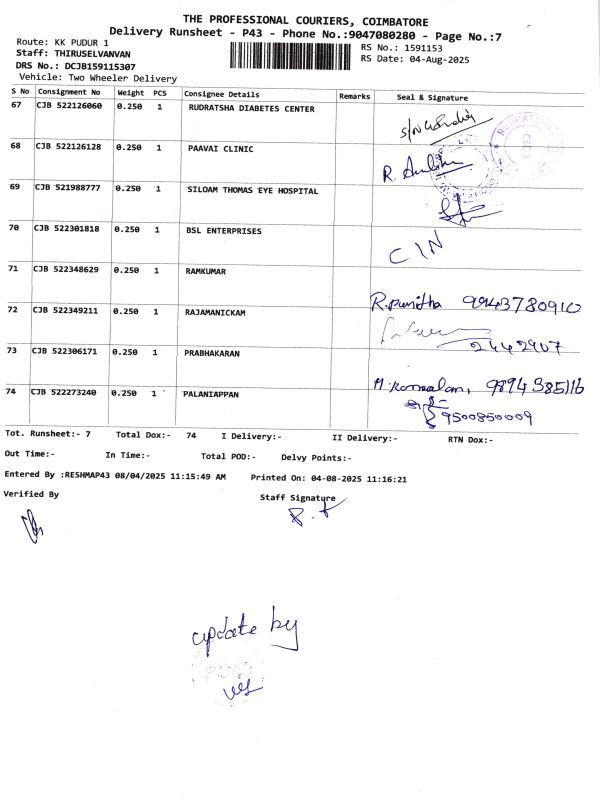 THE PROFESSIONAL COURIERS, COIMBATORE
Delivery Runsheet - P43 - Phone No.:9047080280 - Page No.:7
Route: KK PUDUR 1
RS No.: 1591153
Staff: THIRUSELVANVAN
RS Date: 04-Aug-2025
DRS No.: DCJB159115307
Vehicle: Two Wheeler Delivery
S No Consignment No Weight PCS Consignee Details Remarks Seal & Signature
67 CJB 522126060 0.250 1 RUDRATSHA DIABETES CENTER
68 CJB 522126128 0.250 1 PAAVAI CLINIC
69 CJB 521988777 0.250 1 SILOAM THOMAS EYE HOSPITAL
70 CJB 522301818 0.250 1 BSL ENTERPRISES
CIN
71 CJB 522348629 0.250 1 RAMKUMAR
R.punitha 9943780910
72 CJB 522349211 0.250 1 RAJAMANICKAM
2442907
73 CJB 522306171 0.250 1 PRABHAKARAN
9894385116
74 CJB 522273240 0.250 1 PALANIAPPAN
9500850009
Tot. Runsheet:- 7 Total Dox:- 74 I Delivery:- II Delivery:- RTN Dox:-
Out Time:- In Time:- Total POD:- Delvy Points:-
Entered By :RESHMAP43 08/04/2025 11:15:49 AM Printed On: 04-08-2025 11:16:21
Verified By
Staff Signature
update by